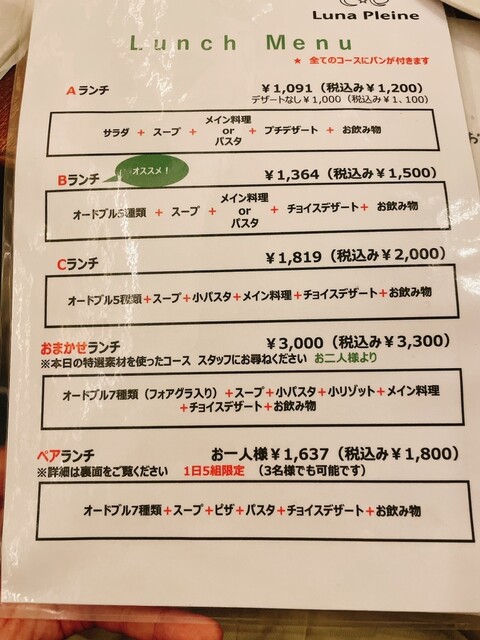 Luna Pleine
Lunch Menu
★ 全てのコースにパンが付きます
Aランチ ￥1,091（税込み￥1,200）
デザートなし￥1,000（税込み￥1、100）
サラダ + スープ + メイン料理 or パスタ + プチデザート + お飲み物
オススメ！
Bランチ ￥1,364（税込み￥1,500）
オードブル5種類 + スープ + メイン料理 or パスタ + チョイスデザート+ お飲み物
Cランチ ￥1,819（税込み￥2,000）
オードブル5種類+スープ+小パスタ+メイン料理+チョイスデザート+お飲み物
おまかせランチ ￥3,000（税込み￥3,300）
※本日の特選素材を使ったコース スタッフにお尋ねください お二人様より
オードブル7種類（フォアグラ入り）+スープ+小パスタ+小リゾット+メイン料理
+チョイスデザート+お飲み物
ペアランチ お一人様￥1,637（税込み￥1,800）
※詳細は裏面をご覧ください 1日5組限定 （3名様でも可能です）
オードブル7種類+スープ+ピザ+パスタ+チョイスデザート+お飲み物